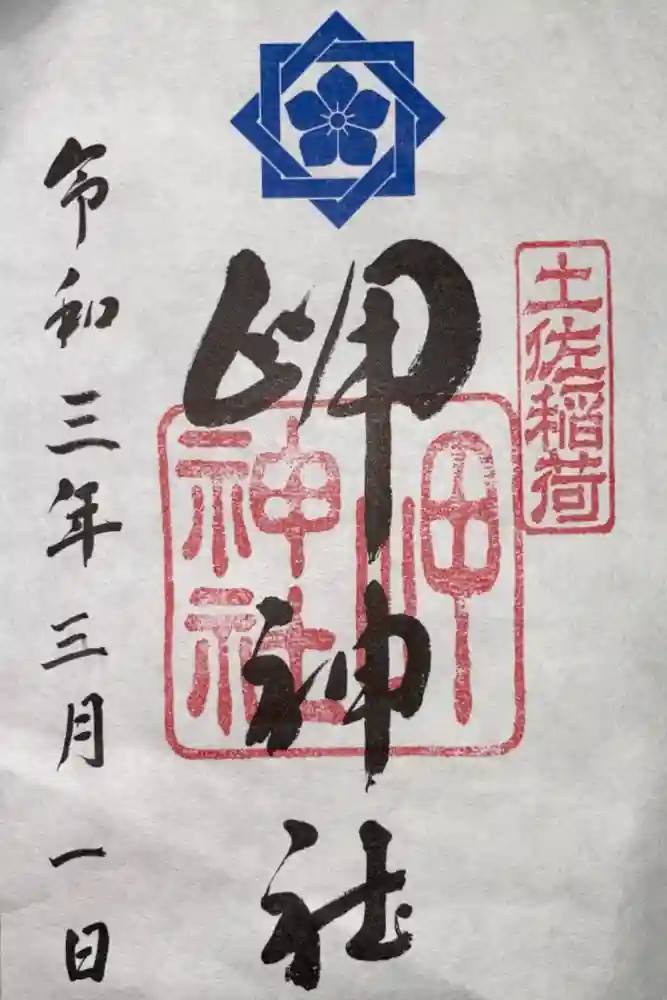 土佐稲荷
岬神社
岬
神社
令和三年三月一日